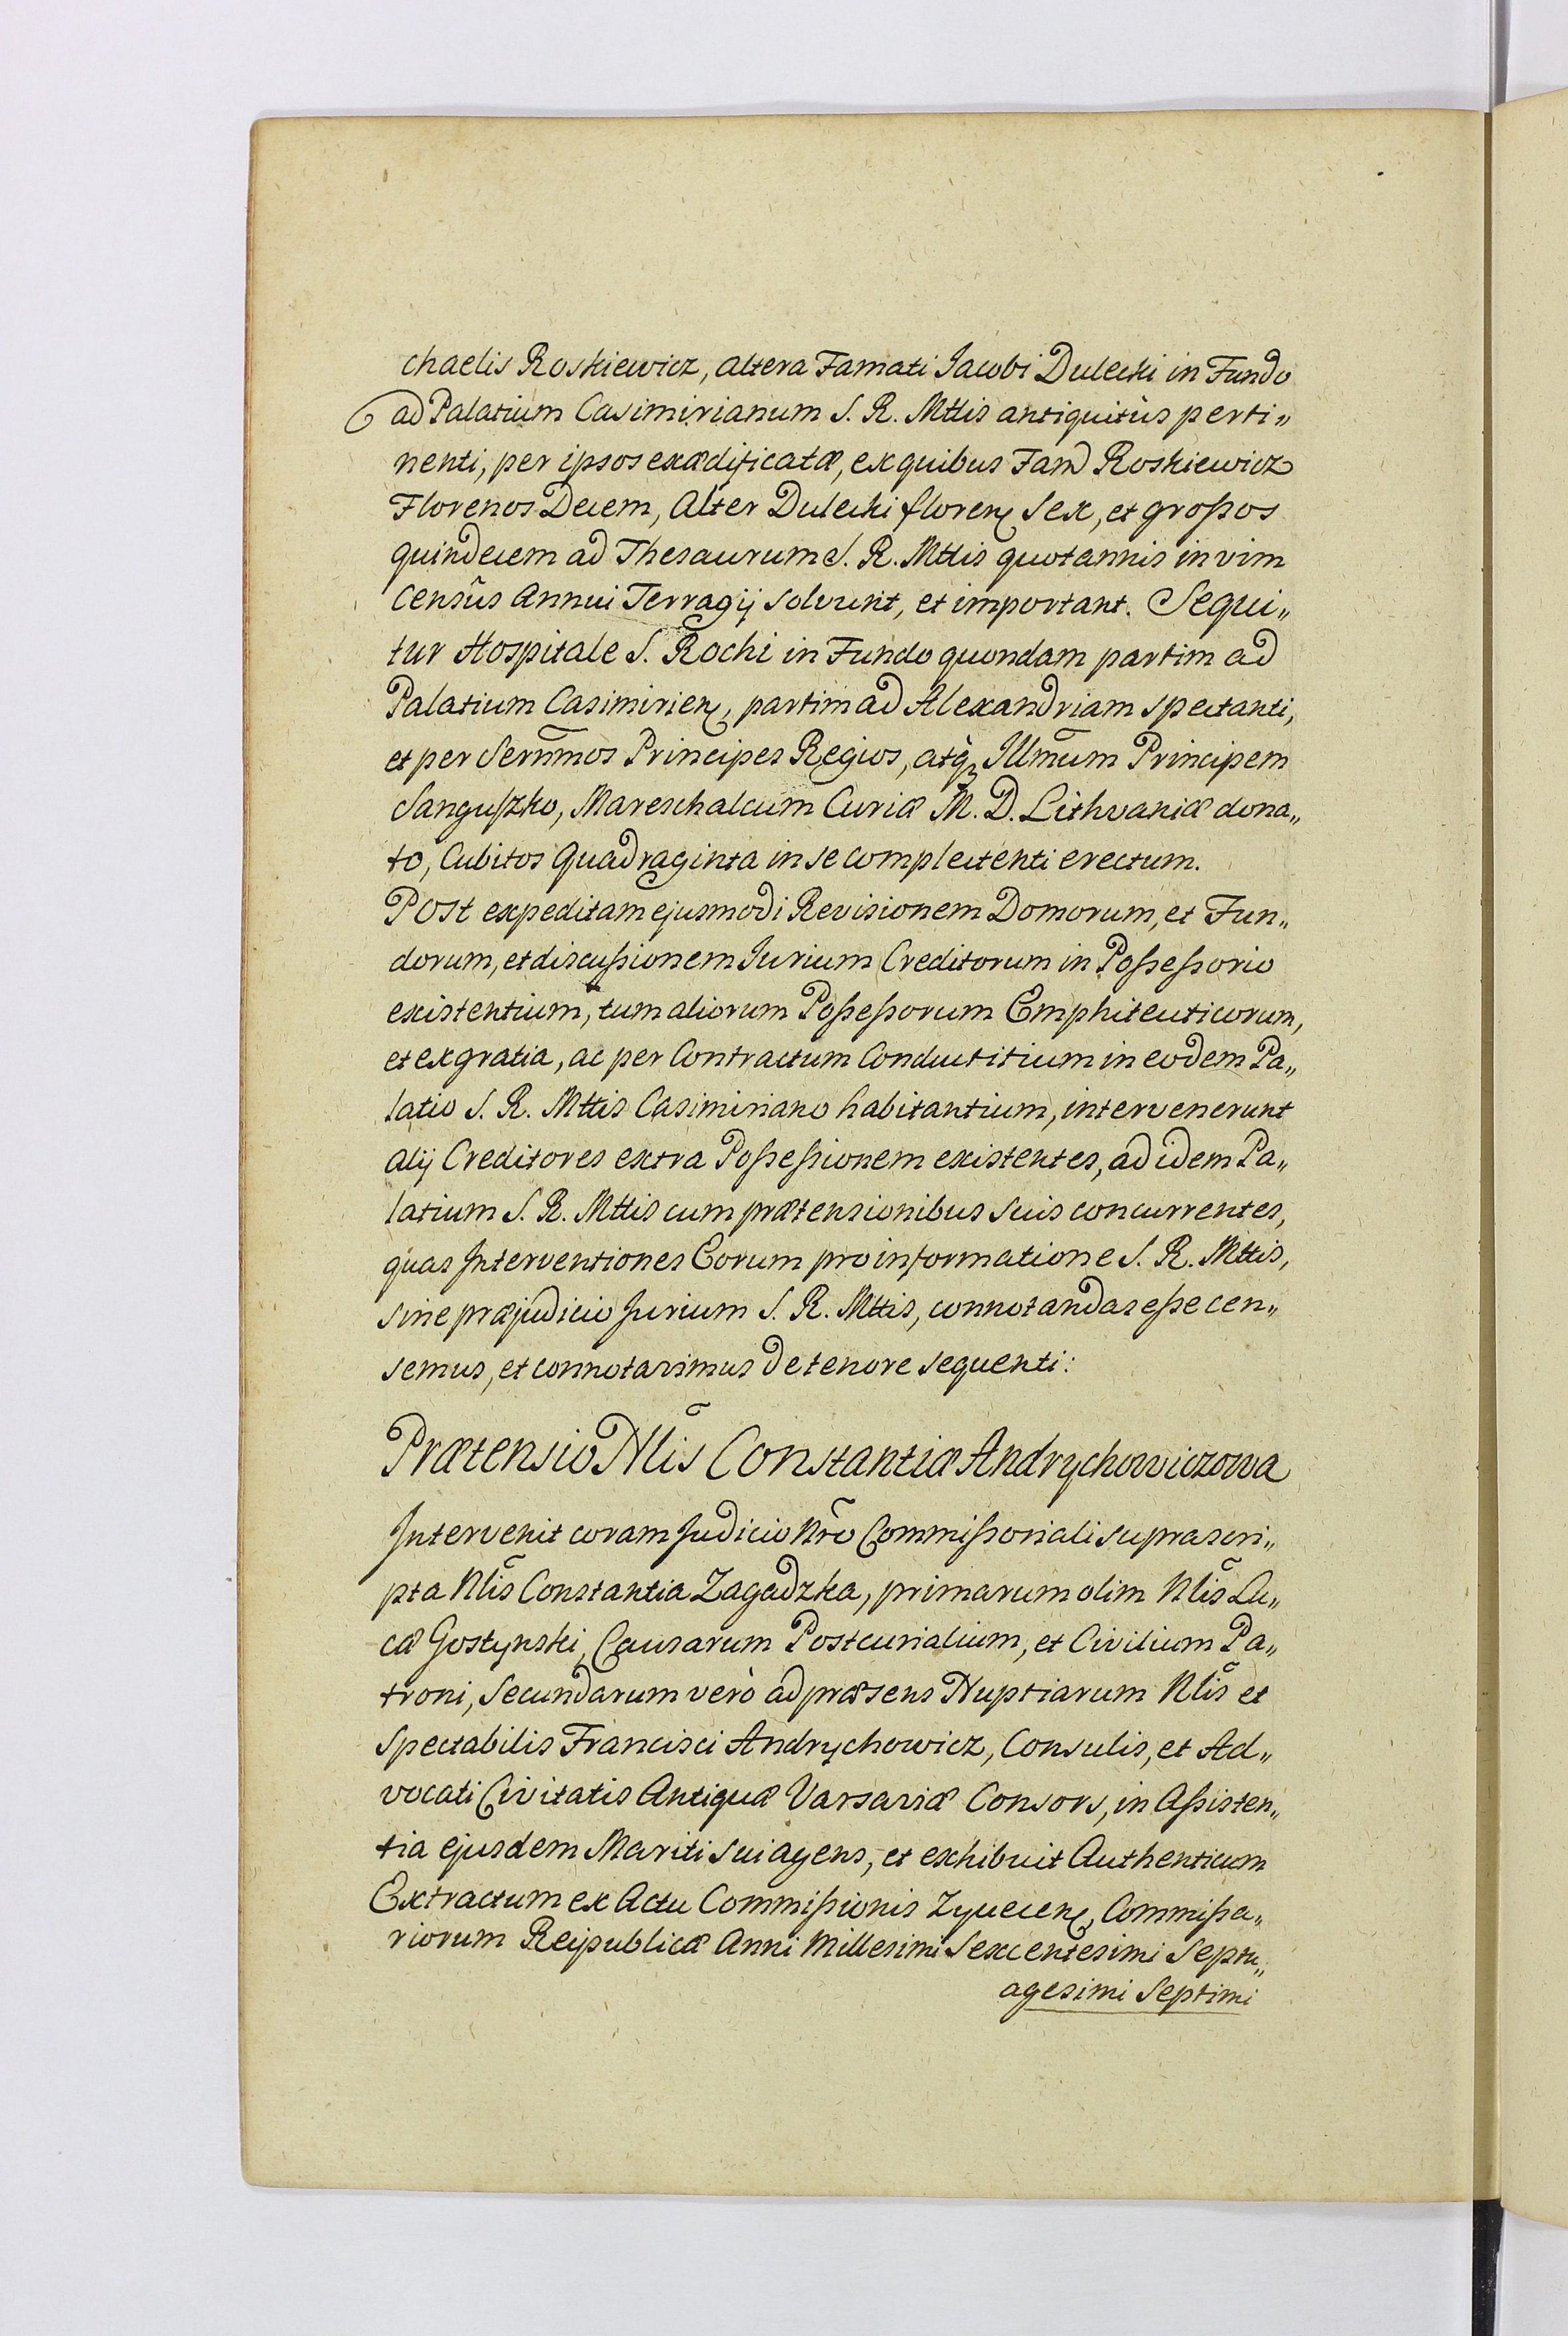 chaelis Roskiewicz, altera Famati Jacobi Dulecki in Fundo
ad Palatium Casimirianum S. R. Mttis antiquitùs perti„
nenti, per ipsos exædificatæ, ex quibus Fam Roskiewicz
Florenos Decem, Alter Dulecki floren Sex, et großos
quindecem ad Thesaurum S. R. Mttis quotannis in vim
Censûs Annui Terragij solvunt, et important. Sequi„
tur Hospitale S. Rochi in Fundo quondam partim ad
Palatium Casimirien, partim ad Alexandriam spectanti,
et per Serm̃mos Principes Regios, atq̀ꝫ Illm̃um Principem
Sangußko, Mareschalcum Curiæ M. D. Lithvaniæ dona„
to, Cubitos Quadraginta in se complectenti erectum.
Post expeditam ejusmodi Revisionem Domorum, et Fun„
dorum, et discußionem Jurium Creditorum in Poßeßorio
existentium, tum aliorum Poßeßorum Emphiteuticorum,
et ex gratia, ac per Contractum Conductitium in eodem Pa„
latio S. R. Mttis Casimiriano habitantium, intervenerunt
alij Creditores extra Poßeßionem existentes, ad idem Pa„
latium S. R. Mttis cum prætensionibus suis concurrentes,
quas Interventiones Eorum pro informatione S. R. Mttis,
sine præjudicio Jurium S. R. Mttis, connotandas eße cen„
semus, et connotavimus de tenore sequenti:
Prætensio Nlis̃ Constantiæ Andrychowiczowa
Intervenit coram Judicio Nrõ Commißoriali suprascri„
pta Nlis̃ Constantia Zagadzka, primarum olim Nlis̃ Lu„
cæ Gostynski, Causarum Postcurialium, et Civilium Pa„
troni, Secundarum verò ad præsens Nuptiarum Nlis̃ et
Spectabilis Francisci Andrychowicz, Consulis, et Ad„
vocati Civitatis Antiquæ Varsaviæ Consors, in Aßisten„
tia ejusdem Mariti sui agens, et exhibuit Authenticum
Extractum ex Actu Commißionis Zyvecen, Commißa„
riorum Reipublicæ Anni Millesimi Sexcentesimi Septu„
agesimi Septimi